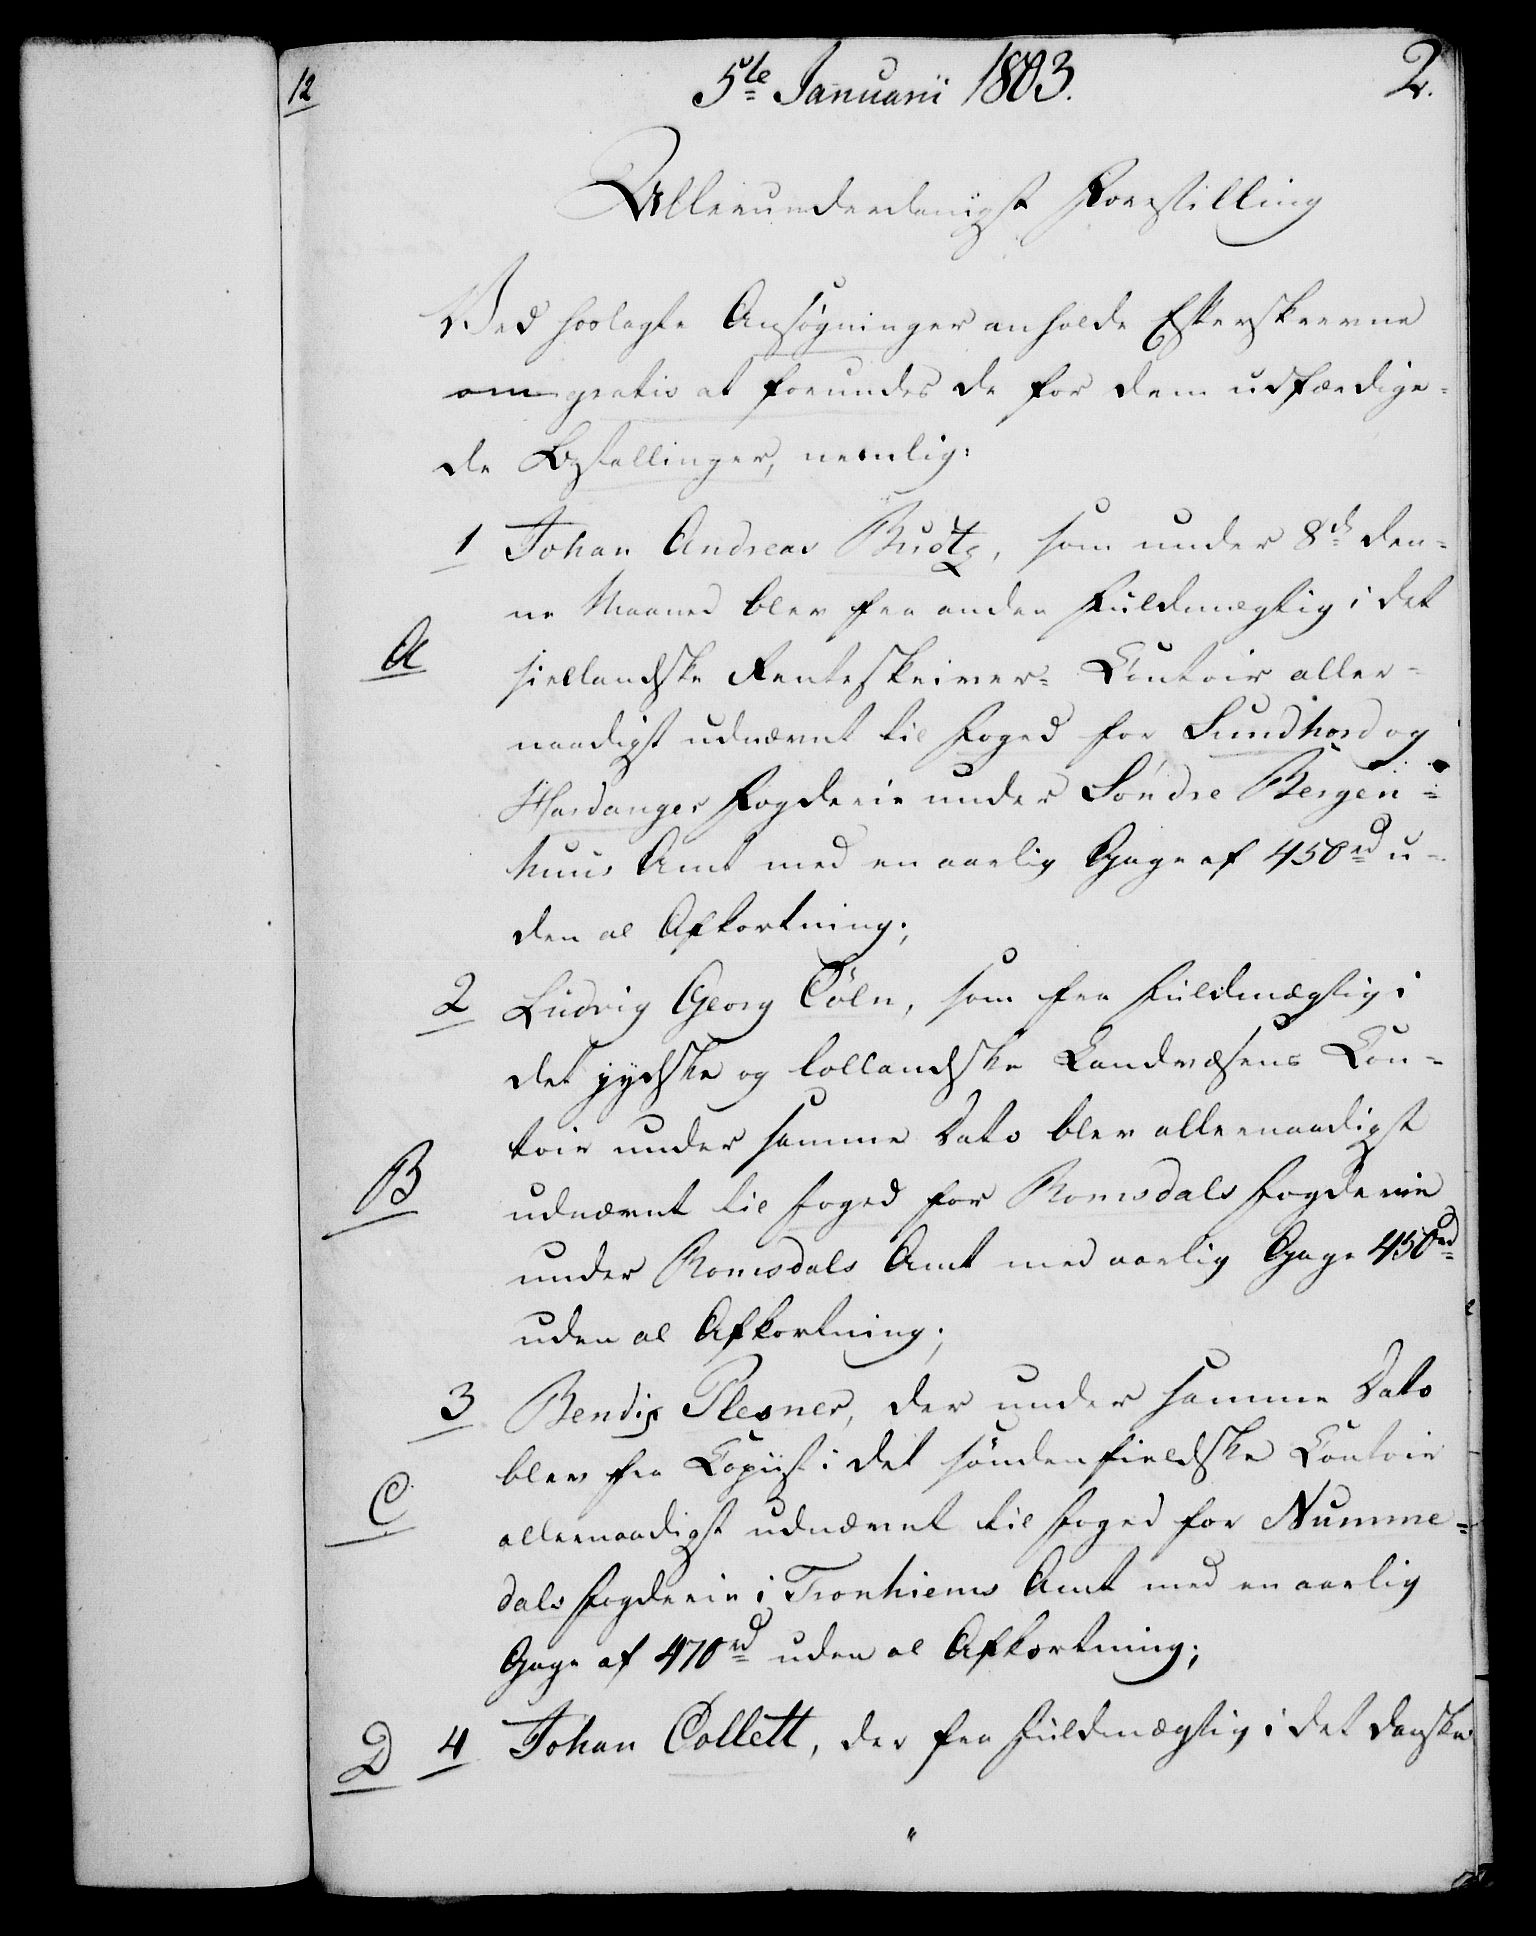 12
5te Januarii 1803.
2.
Allerunderdanigst Forestilling
Ved hoslagte Ansøgninger anholde Efterskrevne
om gratis at forundes de for dem udfærdige-
de Bestallinger, nemlig:
1 Johan Andreas Buotz, som under 8de den-
ne Maaned blev fra anden Fuldmægtig i det
A
siellandske Renteskriver- Contoir aller-
naadigst udnævnt til Foged for Sundhord og
Hardanger Fogderie under Söndre Bergen-
huus Amt med en aarlig Gage af 450 rd u-
den al Afkortning;
2 Ludvig Georg Cöln, som fra Fuldmægtig i
det jydske og lollandske Landvæsens Con-
toir under samme Dato blev allernaadigst
B
udnævnt til Foged for Romsdals Fogderie
under Romsdals Amt med aarlig Gage 450 rd
uden al Afkortning;
3 Bendix Plesner, der under samme Dato
blev fra Copiist i det søndenfieldske Contoir
C
allernaadigst udnævnt til Foged for Numme-
dals Fogderie i Tronhiems Amt med en aarlig
Gage af 470 rd uden al Afkortning;
D 4 Johan Collett, der fra Fuldmægtig i det danske